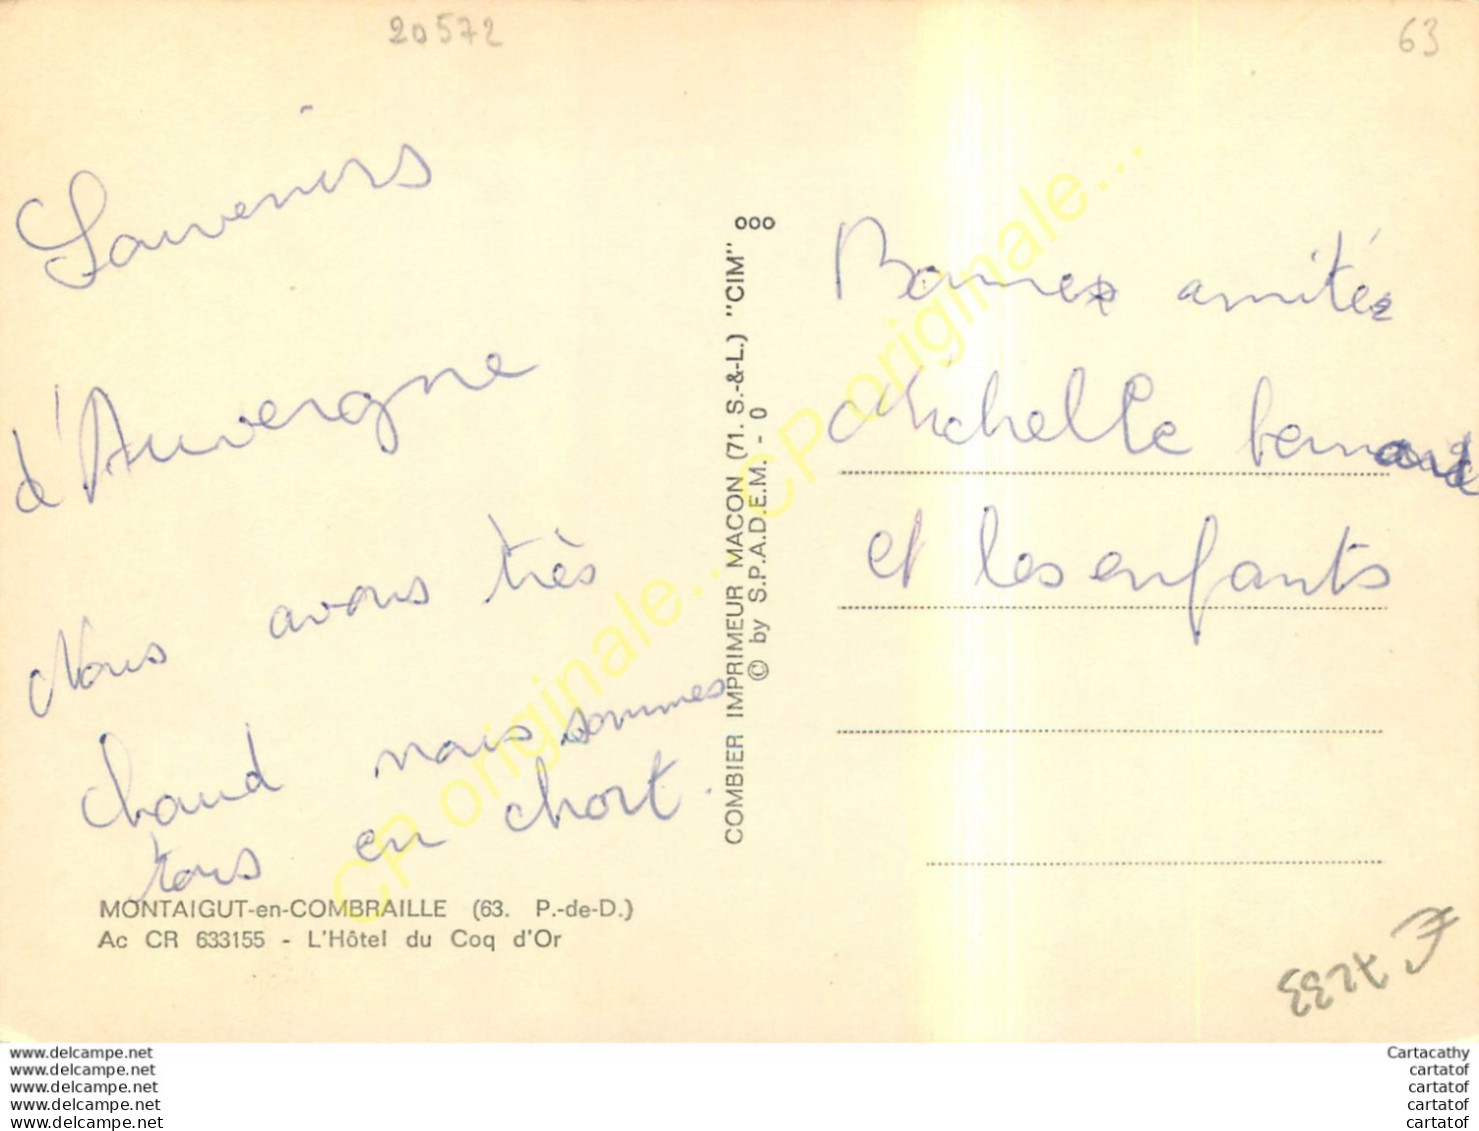 20572
63
Souvenirs
d'Auvergne
Nous avons très
chaud mais sommes
tous en chort.
MONTAIGUT-en-COMBRAILLE (63. P.-de-D.)
Ac CR 633155 - L'Hôtel du Coq d'Or
COMBIER IMPRIMEUR MACON (71. S.-&-L.) "CIM"
© by S.P.A.D.E.M. - 0
Bonnes amitiés
Michelle bernard
et les enfants
CP originale... CP originale...
www.delcampe.net
www.delcampe.net
www.delcampe.net
www.delcampe.net
www.delcampe.net
Cartacathy
cartatof
cartatof
cartatof
cartatof